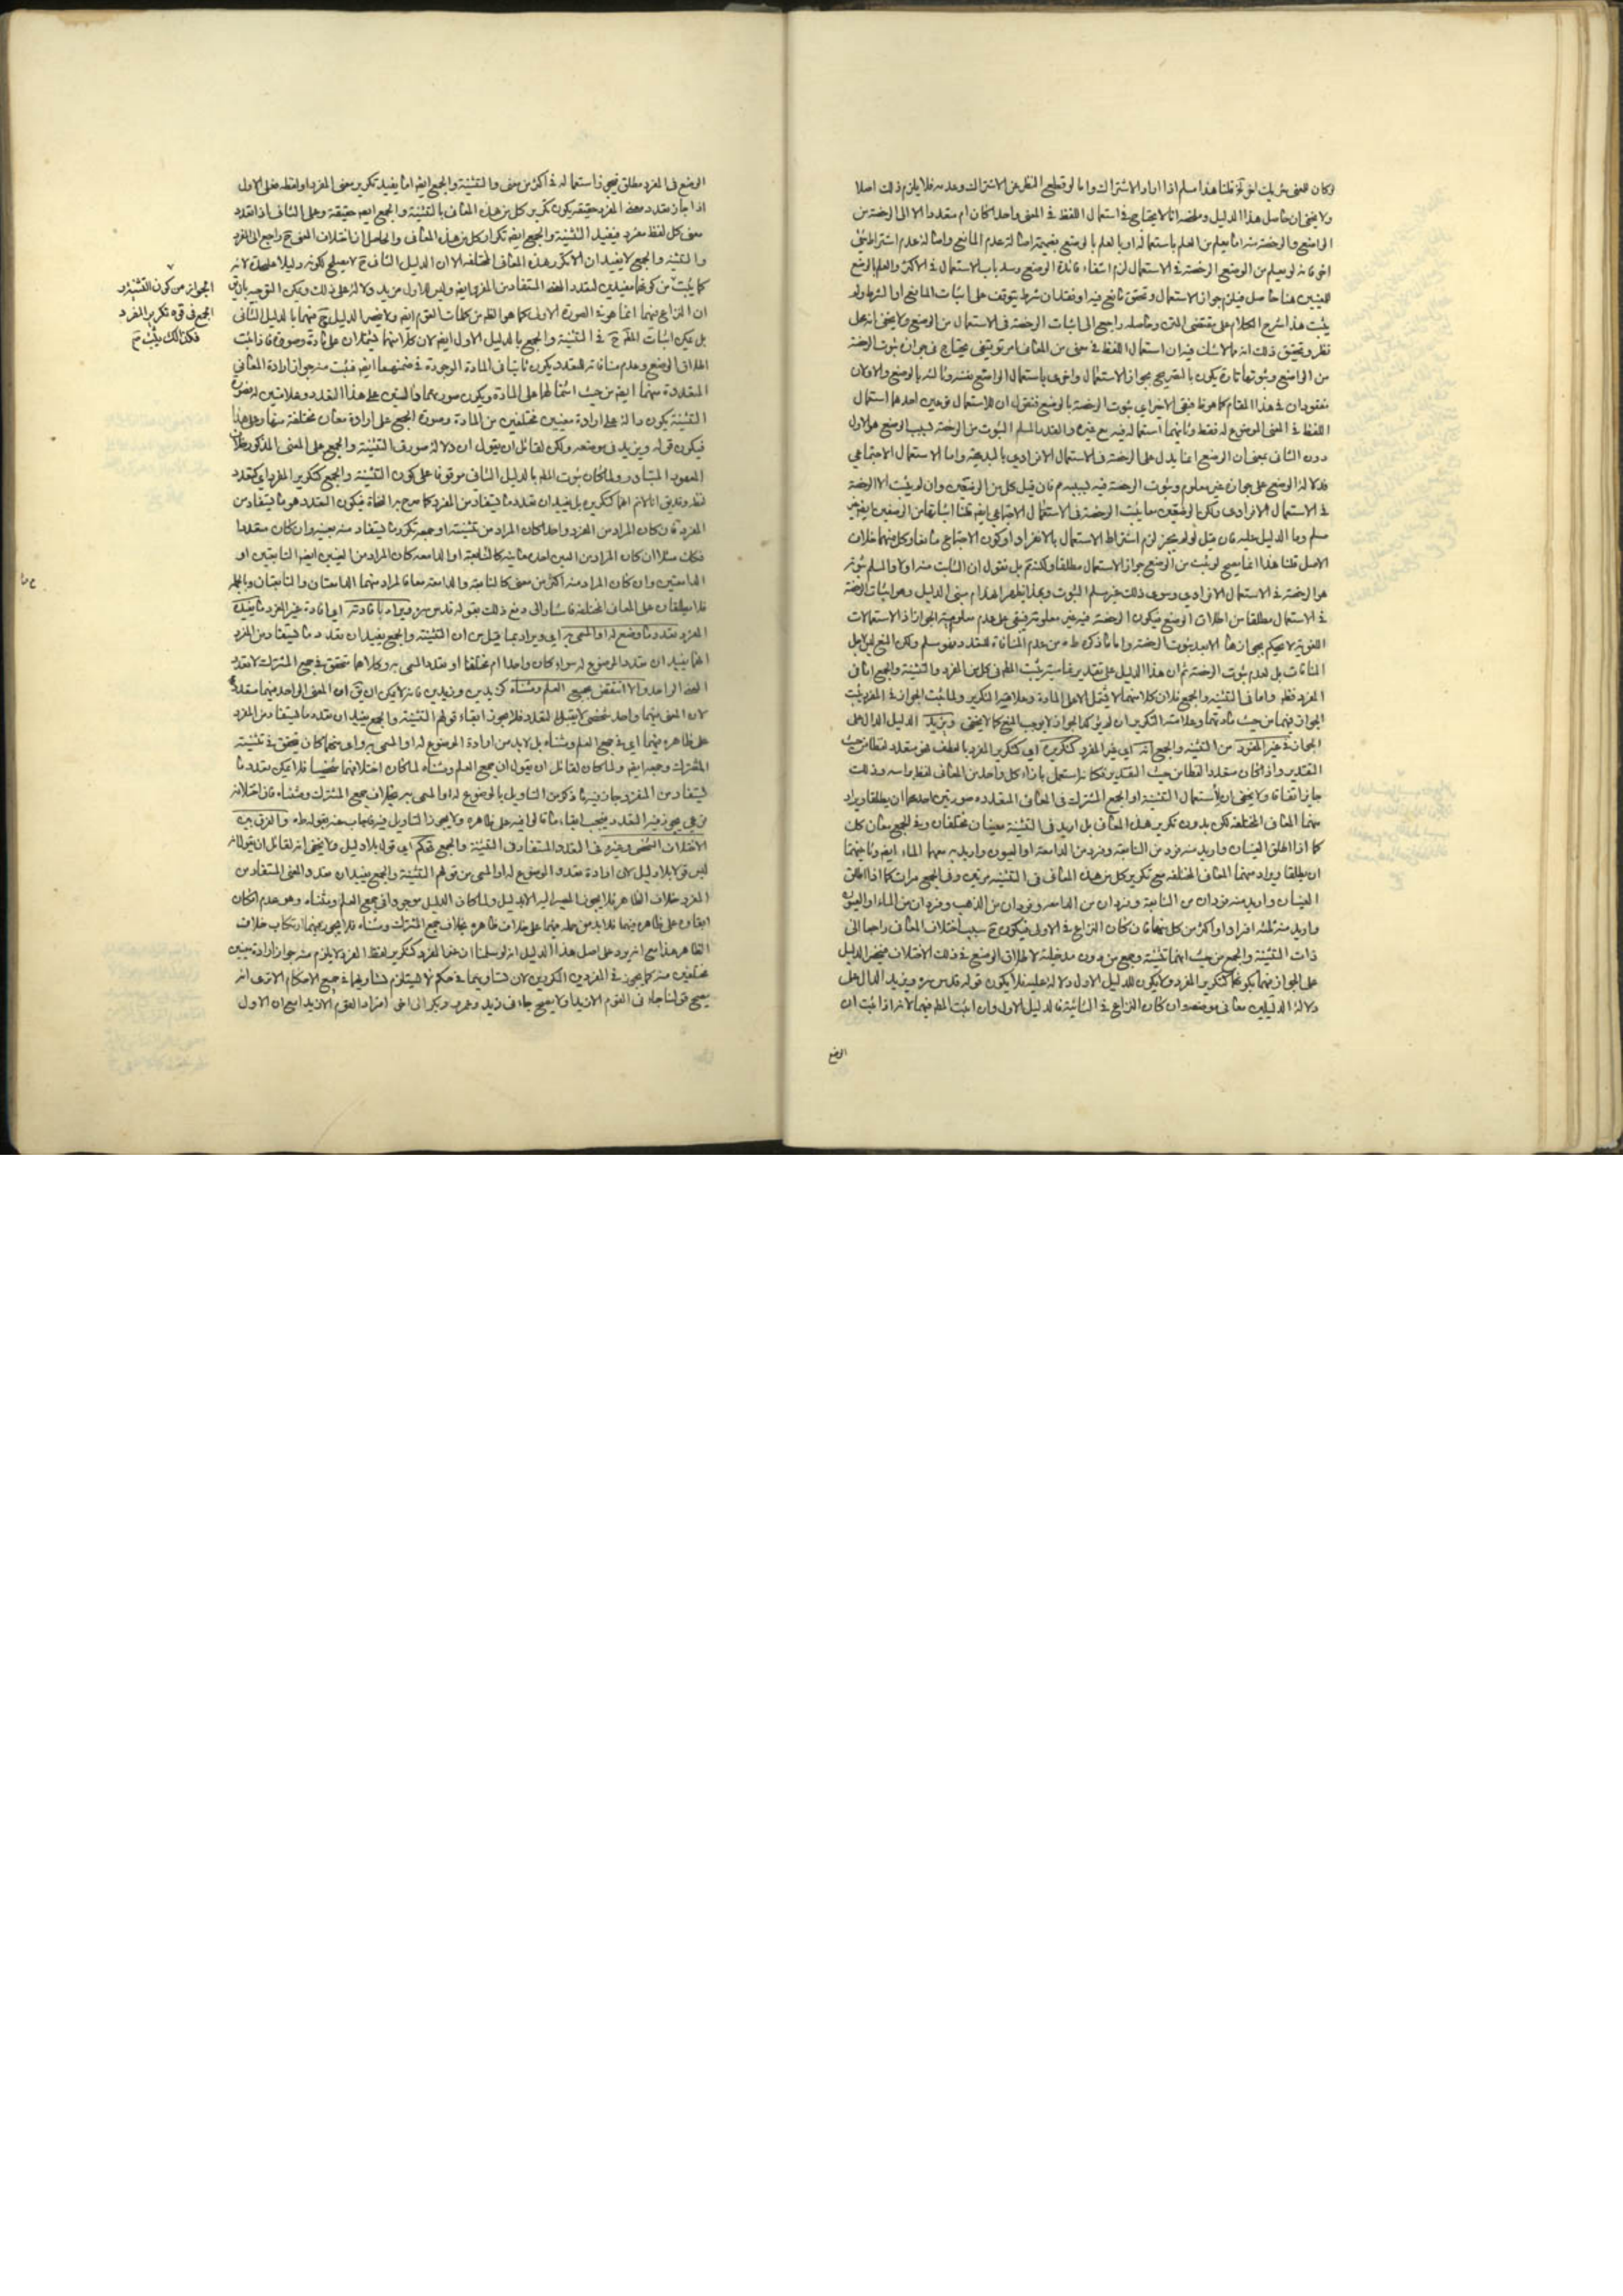 لو كان للمعنى شريك لغوي قلنا هذا مسلم اذا اراد الاشتراك واما لو قطع النظر عن الاشتراك وعدمه فلا يلزم ذلك اصلا
ولا يخفى ان حاصل هذا الدليل وملخصه انا لا نحتاج في استعمال اللفظ في المعنى واحدا كان ام متعددا الا الى الرخصة من
الواضع والرخصة منه انما يعلم من العلم باستعماله او بالعلم بالوضع بضميمة اصالة عدم المانع واصالة عدم اشتراط شيء
اخر فانه لو لم يعلم من الوضع الرخصة في الاستعمال لزم انتفاء فائدة الوضع وسد باب الاستعمال في الاكثر والعلم بالوضع
للمعنيين هنا حاصل فيلزم جواز الاستعمال وتحقق مانع فيه او فقدان شرط يتوقف على اثبات المانع او الشرط ولم
يثبت هذا شرح الكلام على مقتضى المتن وحاصله راجع الى اثبات الرخصة في الاستعمال من الوضع ولا يخفى انه محل
نظر وتحقيق ذلك انه مما لا شك فيه ان استعمال اللفظ في معنى من المعاني امر توقيفي يحتاج في جوازه ثبوت الرخصة
من الواضع وثبوتها تارة يكون بالتصريح بجواز الاستعمال واخرى باستعمال الواضع بنفسه وثالثة بالوضع والاولان
مفقودان في هذا المقام كما هو ظ فبقى الاخر اي ثبوت الرخصة بالوضع فنقول ان للاستعمال فردين احدهما استعمال
اللفظ في المعنى الموضوع له فقط وثانيهما استعماله فيه مع غيره والقدر المسلم الثبوت من الرخصة بسبب الوضع هو الاول
دون الثاني بمعنى ان الوضع انما يدل على الرخصة في الاستعمال الانفرادي بالبديهة واما الاستعمال الاجتماعي
فدلالة الوضع على جوازه غير معلوم وثبوت الرخصة فيه بسببه م فان قيل كل من الوضعين وان لم يثبت الا الرخصة
في الاستعمال الانفرادي ولكن الوضعين معا يثبت الرخصة في الاستعمال الاجتماعي ايضا قلنا اثباتها من الوضعين ايضا غير
مسلم وما الدليل عليه فان قيل لو لم يجز لزم اشتراط الاستعمال بالانفراد او كون الاجتماع مانعا وكل منهما خلاف
الاصل قلنا هذا انما يصح لو ثبت من الوضع جواز الاستعمال مطلقا ولكنه م بل نقول ان الثابت منه اولا والمسلم ثبوته
هو الرخصة في الاستعمال الانفرادي وسوى ذلك غير مسلم الثبوت وبهذا يظهر انهدام مبنى الدليل وهو اثبات الرخصة
في الاستعمال مطلقا من اطلاق الوضع فيكون الرخصة فيه غير معلومة فيبقى على عدم معلومية الجواز اذ الاستعمالات
اللغوية لا يحكم بجوازها الا بعد ثبوت الرخصة واما ما ذكره ط من عدم المنافاة للتعدد فهو مسلم ولكن المنع ليس لاجل
المنافات بل لعدم ثبوت الرخصة ثم ان هذا الدليل على تقدير تماميته يثبت المط في كل من المفرد والتثنية والجمع اما في
المفرد فظ واما في التثنية والجمع فلان كلا منهما لا يشمل الا على المادة وعلامة التكرير ولما ثبت الجواز في المفرد يثبت
الجواز فيهما من حيث مادتهما وعلامة التكرير ان لم يؤكد الجواز لا يوجب المنع كما لا يخفى ويزيد الدليل الدال على
الجواز في غير المفرد من التثنية والجمع انه اي غير المفرد كتكرير اي كتكرير المفرد بالعطف فهو متعدد لفظا من حيث
التقدير واذا كان متعددا لفظا من حيث التقدير فكانه استعمل بازاء كل واحد من المعاني لفظ براسه وذلك
جايز اتفاقا ولا يخفى ان لاستعمال التثنية او الجمع المشترك في المعاني المتعددة صورتين احديهما ان يطلقا ويراد
منهما المعاني المختلفة لكن بدون تكرير هذه المعاني بل اريد في التثنية معنيان مختلفان وفي الجمع معان كك
كما اذا اطلق العينان واريد منه فرد من النابعة وفرد من الدامعة او العيون واريد به معهما الماء ايضا وثانيتهما
ان يطلقا ويراد منهما المعاني المختلفة مع تكرير كل من هذه المعاني في التثنية مرتين وفي الجمع مرات كما اذا اطلق
العينان واريد منه فردان من النابعة وفردان من الدامعة وفردان من الذهب وفردان من الماء او العيون
واريد منه ثلثة افراد او اكثر من كل منها فان كان النزاع في الاولى فيكون ح سبب اختلاف المعاني راجعا الى
ذات التثنية والجمع من حيث انهما تثنية وجمع من دون مدخلية لاطلاق الوضع في ذلك الاختلاف فينحصر الدليل
على الجواز فيهما بكونهما كتكرير المفرد ولا يكون للدليل الاول دلالة عليه فلا يكون قوله قدس سره ويزيد الدال على
دلالة الدليلين معا في موضعه وان كان النزاع في الثانية فالدليل الاول وان اثبت المط فيهما لانه اذا ثبت ان
الوضع
الوضع في المفرد مطلق فيجوز استعماله في اكثر من معنى والتثنية والجمع ايضا انما يفيد تكرير معنى المفرد او لفظه فعلى الاول
اذا جاز تعدد معنى المفرد حقيقة يكون تكرير كل من هذه المعاني بالتثنية والجمع ايضا حقيقة وعلى الثاني اذا تعدد
معنى كل لفظ مفرد فيفيد التثنية والجمع ايضا تكرار كل من هذه المعاني والحاصل ان اختلاف المعنى ح راجع الى المفرد
والتثنية والجمع لا يفيدان الا تكرر هذه المعاني المختلفة الا ان الدليل الثاني ح لا يصلح لكونه دليلا على حدة لانه
كما يثبت من كونهما مفيدين لتعدد المعنى المستفاد من المفرد ايضا وليس للاول مزيد دلالة على ذلك ويمكن التوجيه بان يق
ان النزاع فيهما انما هو في الصورة الاولى كما هو الظ من كلمات القوم ايضا ولا يضر الدليل ح فيهما بالدليل الثاني
بل يمكن اثبات المط ح في التثنية والجمع بالدليل الاول ايضا لان كلا منهما يشتملان على مادة وصورة فاذا ثبت
اطلاق الوضع وعدم منافاته للتعدد يكون ثابتا في المادة الموجودة في ضمنهما ايضا فثبت منه جواز ارادة المعاني
المتعددة منهما ايضا من حيث اشتمالهما على المادة ويكون صورتهما دالتين على هذا التعدد وعلامتين له فصورة
التثنية يكون دالة على ارادة معنيين مختلفين من المادة وصورة الجمع على ارادة معان مختلفة منها وعلى هذا
فيكون قوله ويزيد في موضعه ولكن لقائل ان يقول ان دلالة صورة التثنية والجمع على المعنى المذكور خلاف
المعهود المتبادر ولما كان ثبوت المط بالدليل الثاني موقوفا على كون التثنية والجمع كتكرير المفرد اي كتعدد
لفظه وقد يق انا لا نم انهما كتكريره بل يفيدان تعدد ما يستفاد من المفرد كما صرح به النحاة فيكون التعدد هو ما يستفاد من
المفرد فان كان المراد من المفرد واحدا كان المراد من تثنيته او جمعه تكرر ما يستفاد منه بعينه وان كان متعددا
فكك مثلا ان كان المراد من العين احد معانيه كالنابعة او الدامعة كان المراد من العينين ايضا النابعتين او
الدامعتين وان كان المراد منه اكثر من معنى كالنابعة والدامعة معا فالمراد منهما الدامعتان والنابعتان وبالجملة
فلا يطلقان على المعاني المختلفة فاشار الى دفع ذلك بقوله قدس سره ويراد بافادته اي افادة غير المفرد ما يفيده
المفرد تعدد ما وضع له او المسمى به اي ويراد بما قيل من ان التثنية والجمع يفيدان تعدد ما يستفاد من المفرد
انهما يفيدان تعدد الموضوع له سواء كان واحدا ام مختلفا او تعدد المسمى به وكلاهما متحقق في جمع المشترك لا تعدد
المعنى الواحد والا انتقض بجمع العلم ومثناه كزيدين وزيدين فانه لا يمكن ان يق ان المعنى الواحد منهما متعدد
لان المعنى فيهما واحد شخصي لا يقبل التعدد فلا يجوز ابقاء قولهم التثنية والجمع يفيدان تعدد ما يستفاد من المفرد
على ظاهره فيهما اي في جمع العلم ومثناه بل لا بد من ارادة الموضوع له او المسمى به واي منهما كان يتحقق في تثنية
المشترك وجمعه ايضا ولما كان لقائل ان يقول ان جمع العلم ومثناه لما كان اختلافهما شخصيا فلا يمكن تعدد ما
يستفاد من المفرد جاز فيه ما ذكر من التاويل بالموضوع له او المسمى به بخلاف جمع المشترك ومثناه فان اختلافه
نوعي يجوز فيه التعدد فيجب ابقاء ما قالوا فيه على ظاهره ولا يجوز التاويل فيه فاجاب عنه بقوله ط والفرق بين
الاختلاف الشخصي وغيره في التعدد المستفاد في التثنية والجمع تحكم اي قول بلا دليل ولا يخفى انه لقائل ان يقول انه
ليس قولا بلا دليل لان ارادة تعدد الموضوع له او المسمى من قولهم التثنية والجمع يفيدان تعدد المعنى المستفاد من
المفرد خلاف الظاهر فلا يجوز المصير اليه الا بدليل ولما كان الدليل موجودا في جمع العلم ومثناه وهو عدم امكان
ابقاءه على ظاهره فيهما فلا بد من حمله فيهما على خلاف ظاهره بخلاف جمع المشترك ومثناه فلا يجوز فيهما ارتكاب خلاف
الظاهر هذا مع انه يرد على اصل هذا الدليل انه لو سلمنا ان غير المفرد كتكرير لفظ المفرد لا يلزم منه جواز ارادة معنيين
مختلفين منه كما يجوز في المفردين المكررين لان تساويهما في حكم لا يستلزم تساويهما في جميع الاحكام الا ترى انه
يصح قولنا جاءني القوم الا زيدا ولا يصح جاءني زيد وعمرو وبكر الى اخر افراد القوم الا زيدا مع ان الاول
الجواز من كون التثنية و
الجمع في قوة تكرير المفرد
فكذلك يثبت ح